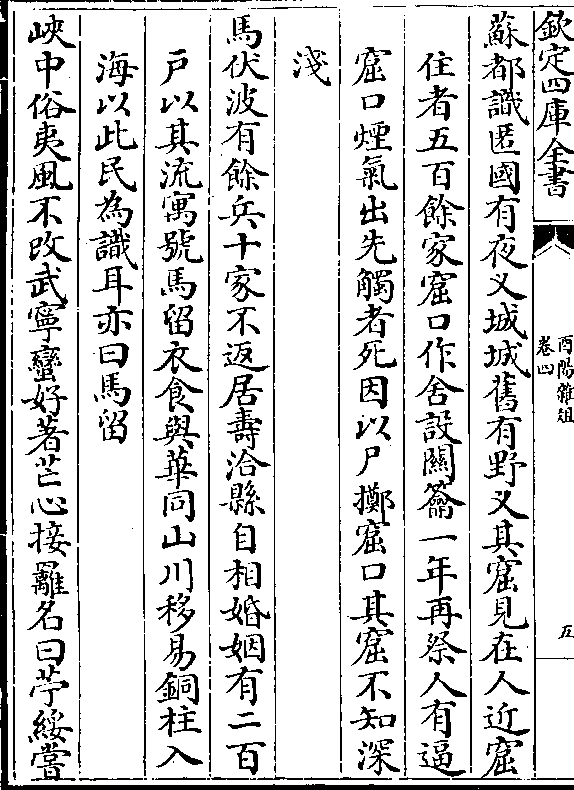 欽定四庫全書
酉陽雜俎
卷四
五
蘇都識匿國有夜义城城舊有野义其窟見在人近窟
住者五百餘家窟口作舍設關籥一年再祭人有逼
窟口煙氣出先觸者死因以尸擲窟口其窟不知深
淺
馬伏波有餘兵十家不返居壽洽縣自相婚姻有二百
戸以其流寓號馬留衣食與華同山川移易銅柱入
海以此民為識耳亦曰馬留
峽中俗夷風不改武寧蠻好著芒心接䍦名曰苧綏嘗